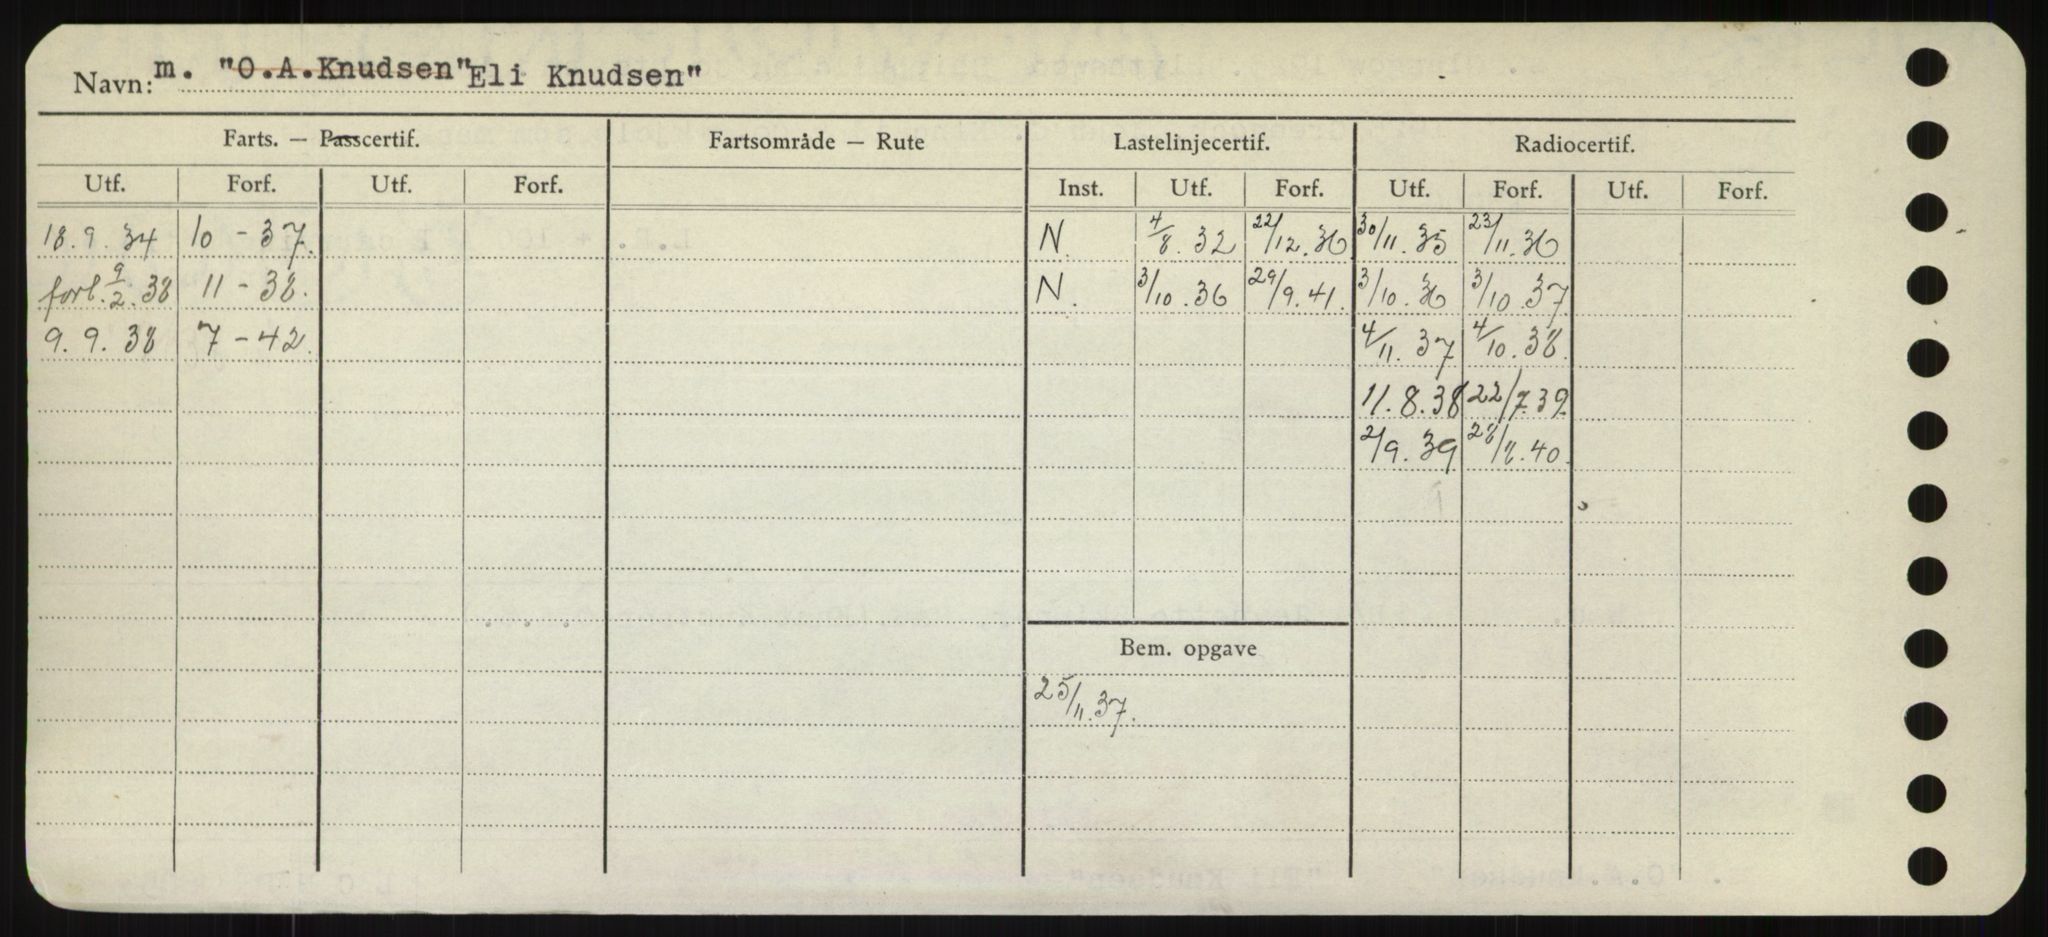 Navn: m. "O.A.Knudsen" Eli Knudsen"
Farts. — Passcertif. Fartsområde — Rute Lastelinjecertif. Radiocertif.
Utf. Forf. Utf. Forf. Inst. Utf. Forf. Utf. Forf. Utf. Forf.
18. 9. 34 10 - 37. N. 4/8. 32 22/12. 36 30/11. 35 23/11. 36
forl. 9/2. 38 11 - 38. N. 3/10. 36 29/9. 41. 3/10. 36 3/10. 37
9. 9. 38 7 - 42. 4/11. 37 4/10. 38.
11. 8. 38 22/7 39
2/9. 39 28/8. 40.
Bem. opgave
25/11. 37.